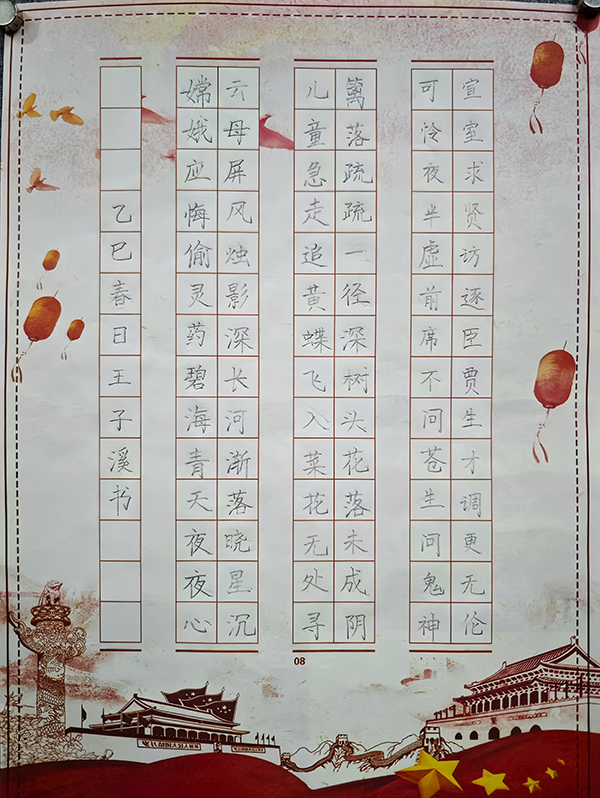 宣室求贤访逐臣贾生才调更无伦
可怜夜半虚前席不问苍生问鬼神
篱落疏疏一径深树头花落未成阴
儿童急走追黄蝶飞入菜花无处寻
云母屏风烛影深长河渐落晓星沉
嫦娥应悔偷灵药碧海青天夜夜心
乙巳春日王子溪书
08